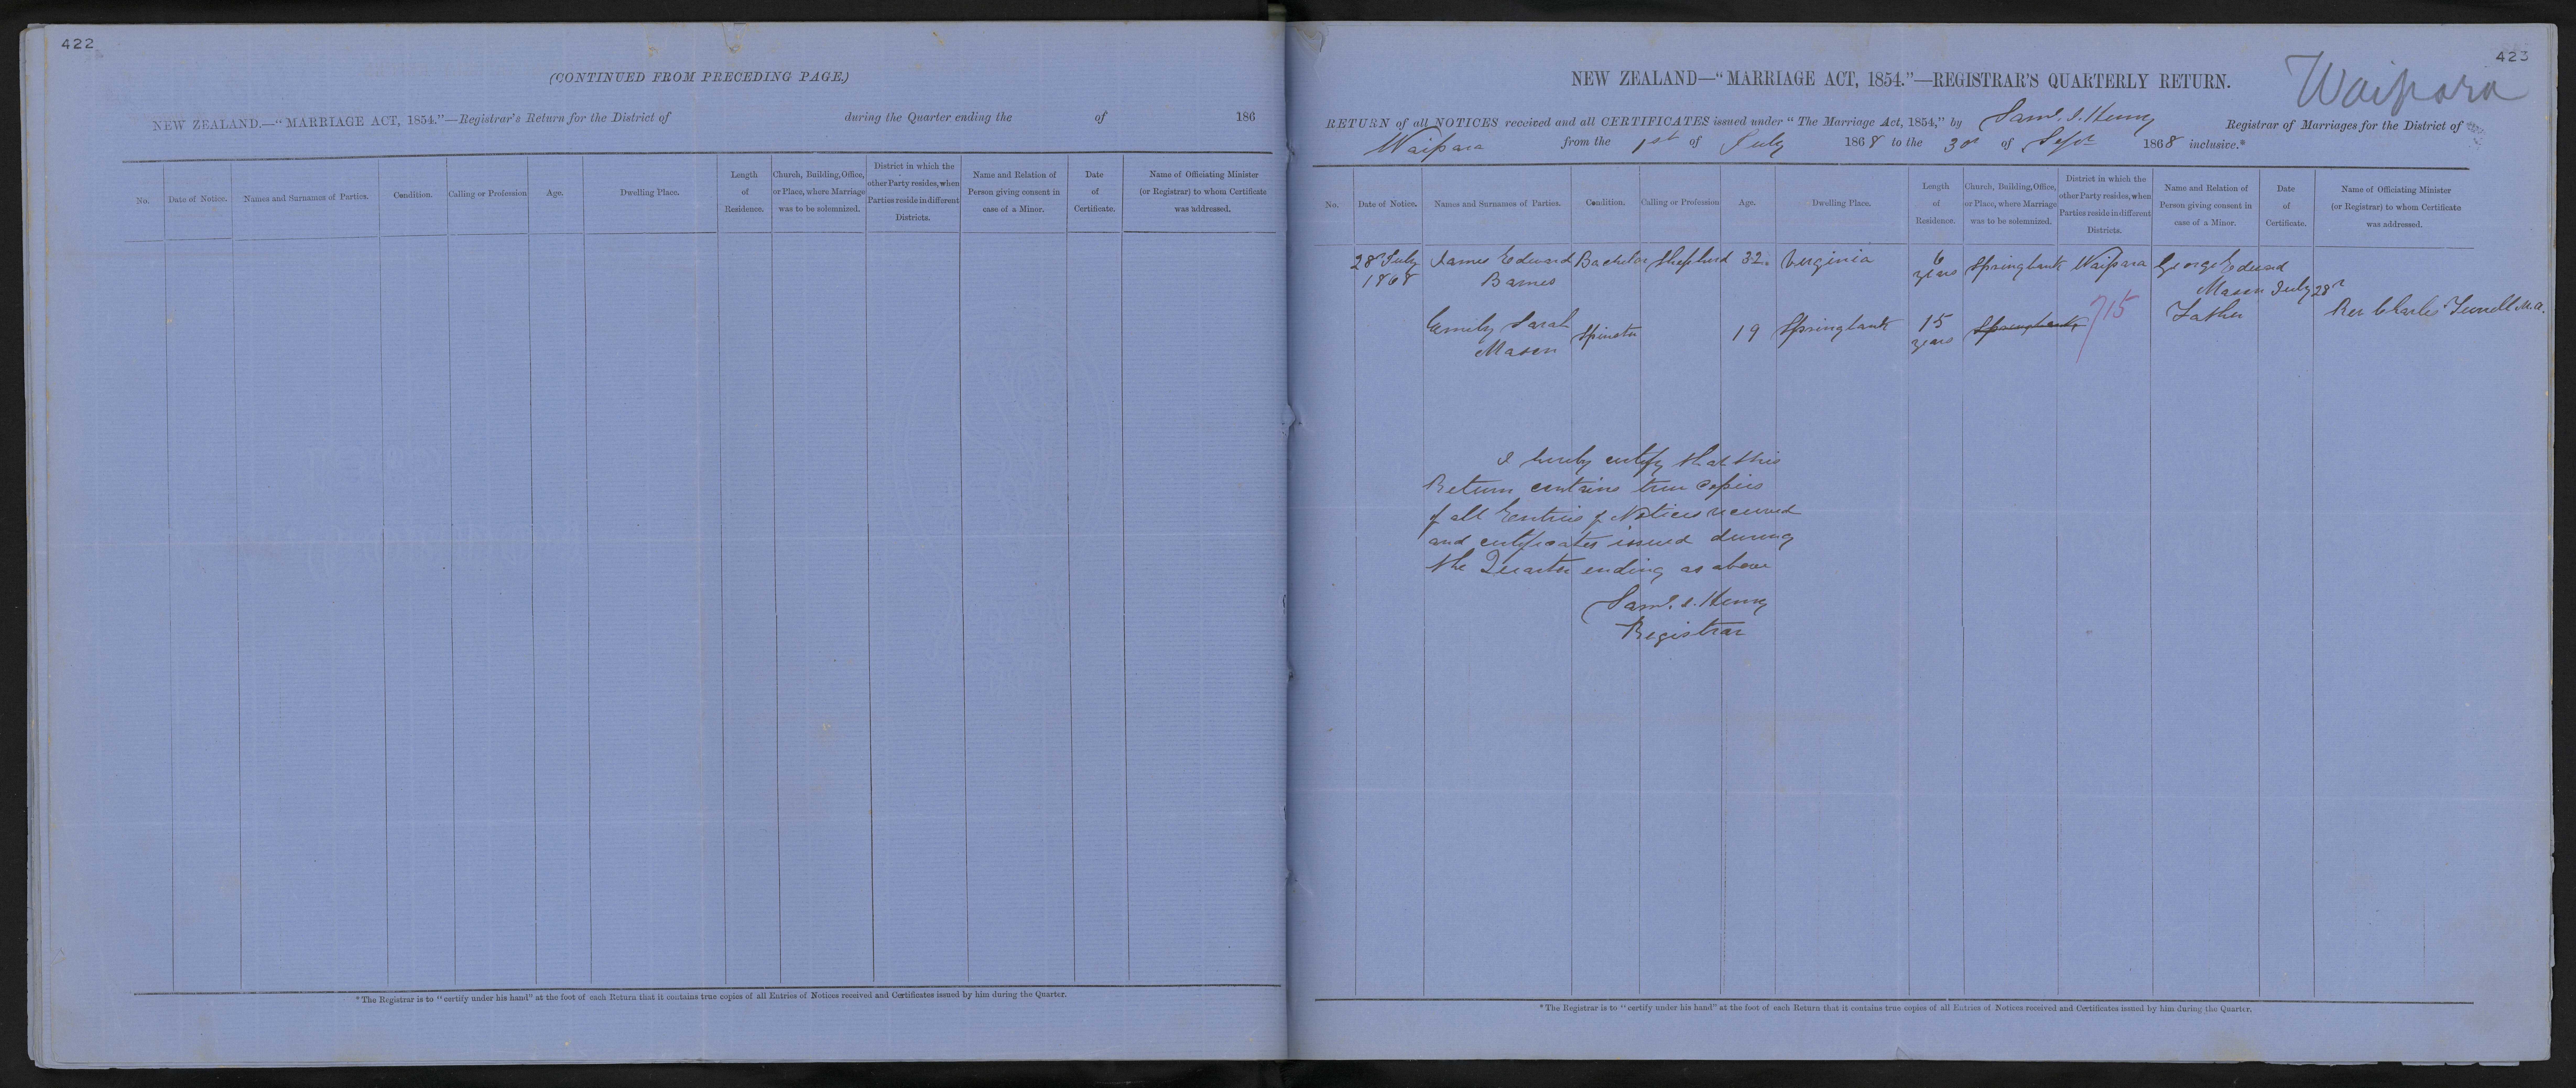 422
(CONTINUED FROM PRECEDING PAGE.)
NEW ZEALAND.—"MARRIAGE ACT, 1854."—Registrar's Return for the District of during the Quarter ending the of 186
No.
Date of Notice.
Names and Surnames of Parties.
Condition.
Calling or Profession
Age.
Dwelling Place.
Length
of
Residence.
Church, Building, Office,
or Place, where Marriage
was to be solemnized.
District in which the
other Party resides, when
Parties reside in different
Districts.
Name and Relation of
Person giving consent in
case of a Minor.
Date
of
Certificate.
Name of Officiating Minister
(or Registrar) to whom Certificate
was addressed.
* The Registrar is to "certify under his hand" at the foot of each Return that it contains true copies of all Entries of Notices received and Certificates issued by him during the Quarter.
423
Waipara
NEW ZEALAND—"MARRIAGE ACT, 1854."—REGISTRAR'S QUARTERLY RETURN.
RETURN of all NOTICES received and all CERTIFICATES issued under "The Marriage Act, 1854," by Saml. S. Henry Registrar of Marriages for the District of
Waipara from the 1st of July 1868 to the 30th of Sept 1868 inclusive.*
No.
Date of Notice.
Names and Surnames of Parties.
Condition.
Calling or Profession
Age.
Dwelling Place.
Length
of
Residence.
Church, Building, Office,
or Place, where Marriage
was to be solemnized.
District in which the
other Party resides, when
Parties reside in different
Districts.
Name and Relation of
Person giving consent in
case of a Minor.
Date
of
Certificate.
Name of Officiating Minister
(or Registrar) to whom Certificate
was addressed.
28 July
1868
James Edward
Barnes
Bachelor
Shepherd
32
Virginia
6
years
Springbank
Waipara
George Edward
Mason
Father
July 28
Rev Charles M.A.
Emily Sarah
Mason
Spinster
19
Springbank
15
years
Springbank
715
I hereby certify that this
Return contains true copies
of all Entries of Notices received
and certificates issued during
the Quarter ending as above
Saml. S. Henry
Registrar
* The Registrar is to "certify under his hand" at the foot of each Return that it contains true copies of all Entries of Notices received and Certificates issued by him during the Quarter.